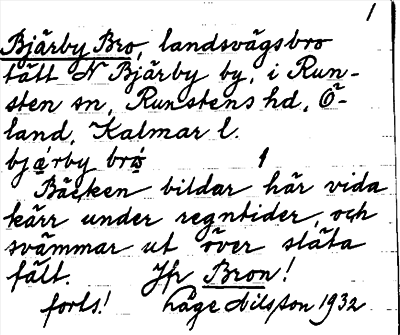 1
Bjärby Bro, landsvägsbro
tätt N Bjärby by, i Run-
sten sn, Runstens hd, Ö-
land, Kalmar l.
bjạ́rby brọ̀
1
Bäcken bildar här vida
kärr under regntider, och
svämmar ut över släta
fält. Jfr Bron!
forts! Håge Nilsson 1932